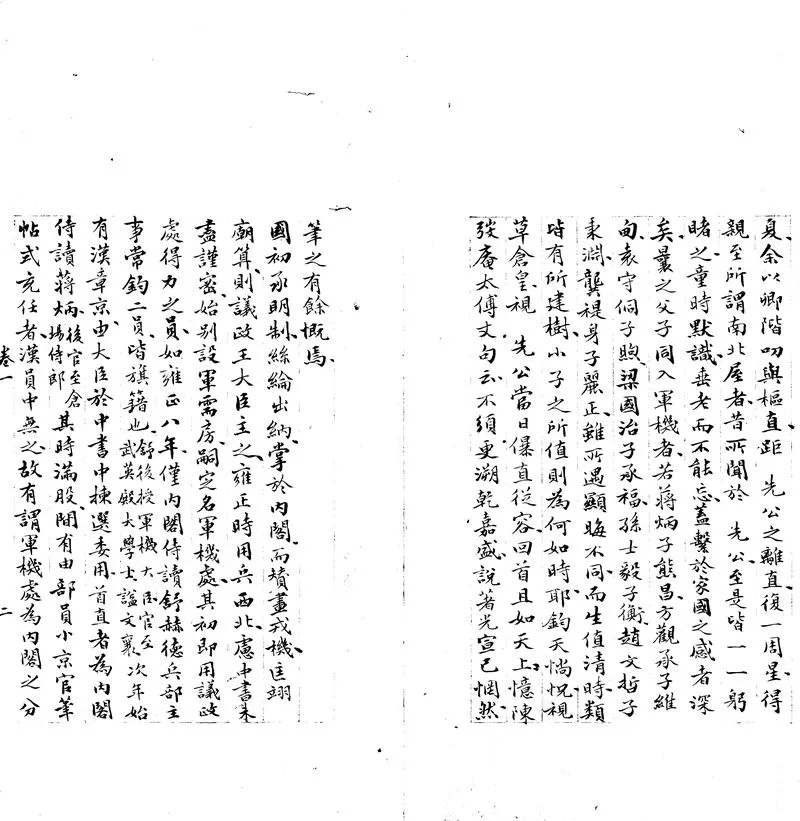 夏余以卿階叨與樞直距　先公之離直復一周星得
親至所謂南北屋者昔所聞於　先公至是皆一一躬
睹之童時默識垂老而不能忘蓋繫於家國之感者深
矣曩之父子同入軍機者若蔣炳子熊昌方觀承子維
甸袁守侗子煦梁國治子承福孫士毅子衡趙文哲子
秉淵龔禔身子麗正雖所遇顯晦不同而生值清時類
皆有所建樹小子之所值則為何如時耶鈞天惝怳視
草倉皇視　先公當日儤直從容回首且如天上憶陳
弢庵太傅文句云不須更溯乾嘉盛說著光宣已惘然
筆之有餘慨焉
國初承明制絲綸出納掌於內閣而贊畫戎機匡翊
廟算則議政王大臣主之雍正時用兵西北慮中書未
盡謹密始別設軍需房嗣定名軍機處其初即用議政
處得力之員如雍正八年僅內閣侍讀舒赫德兵部主
事常鈞二員皆旗籍也舒後授軍機大臣官至武英殿大學士諡文襄次年始
有漢章京由大臣於中書中揀選委用首直者為內閣
侍讀蔣炳後官至倉場侍郎其時滿股間有由部員小京官筆
帖式充任者漢員中無之故有謂軍機處為內閣之分
卷一
二